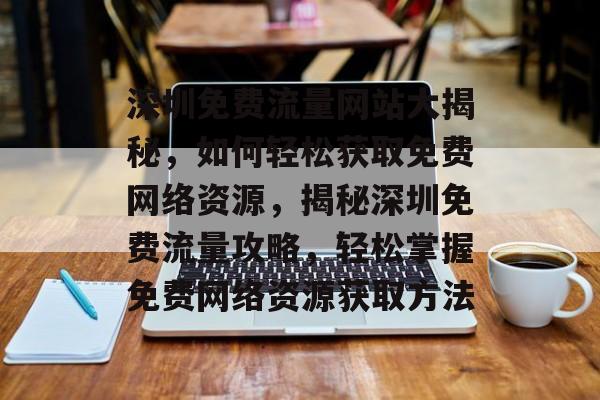 深圳免费流量网站大揭
秘，如何轻松获取免费
网络资源，揭秘深圳免
费流量攻略，轻松掌握
免费网络资源获取方法